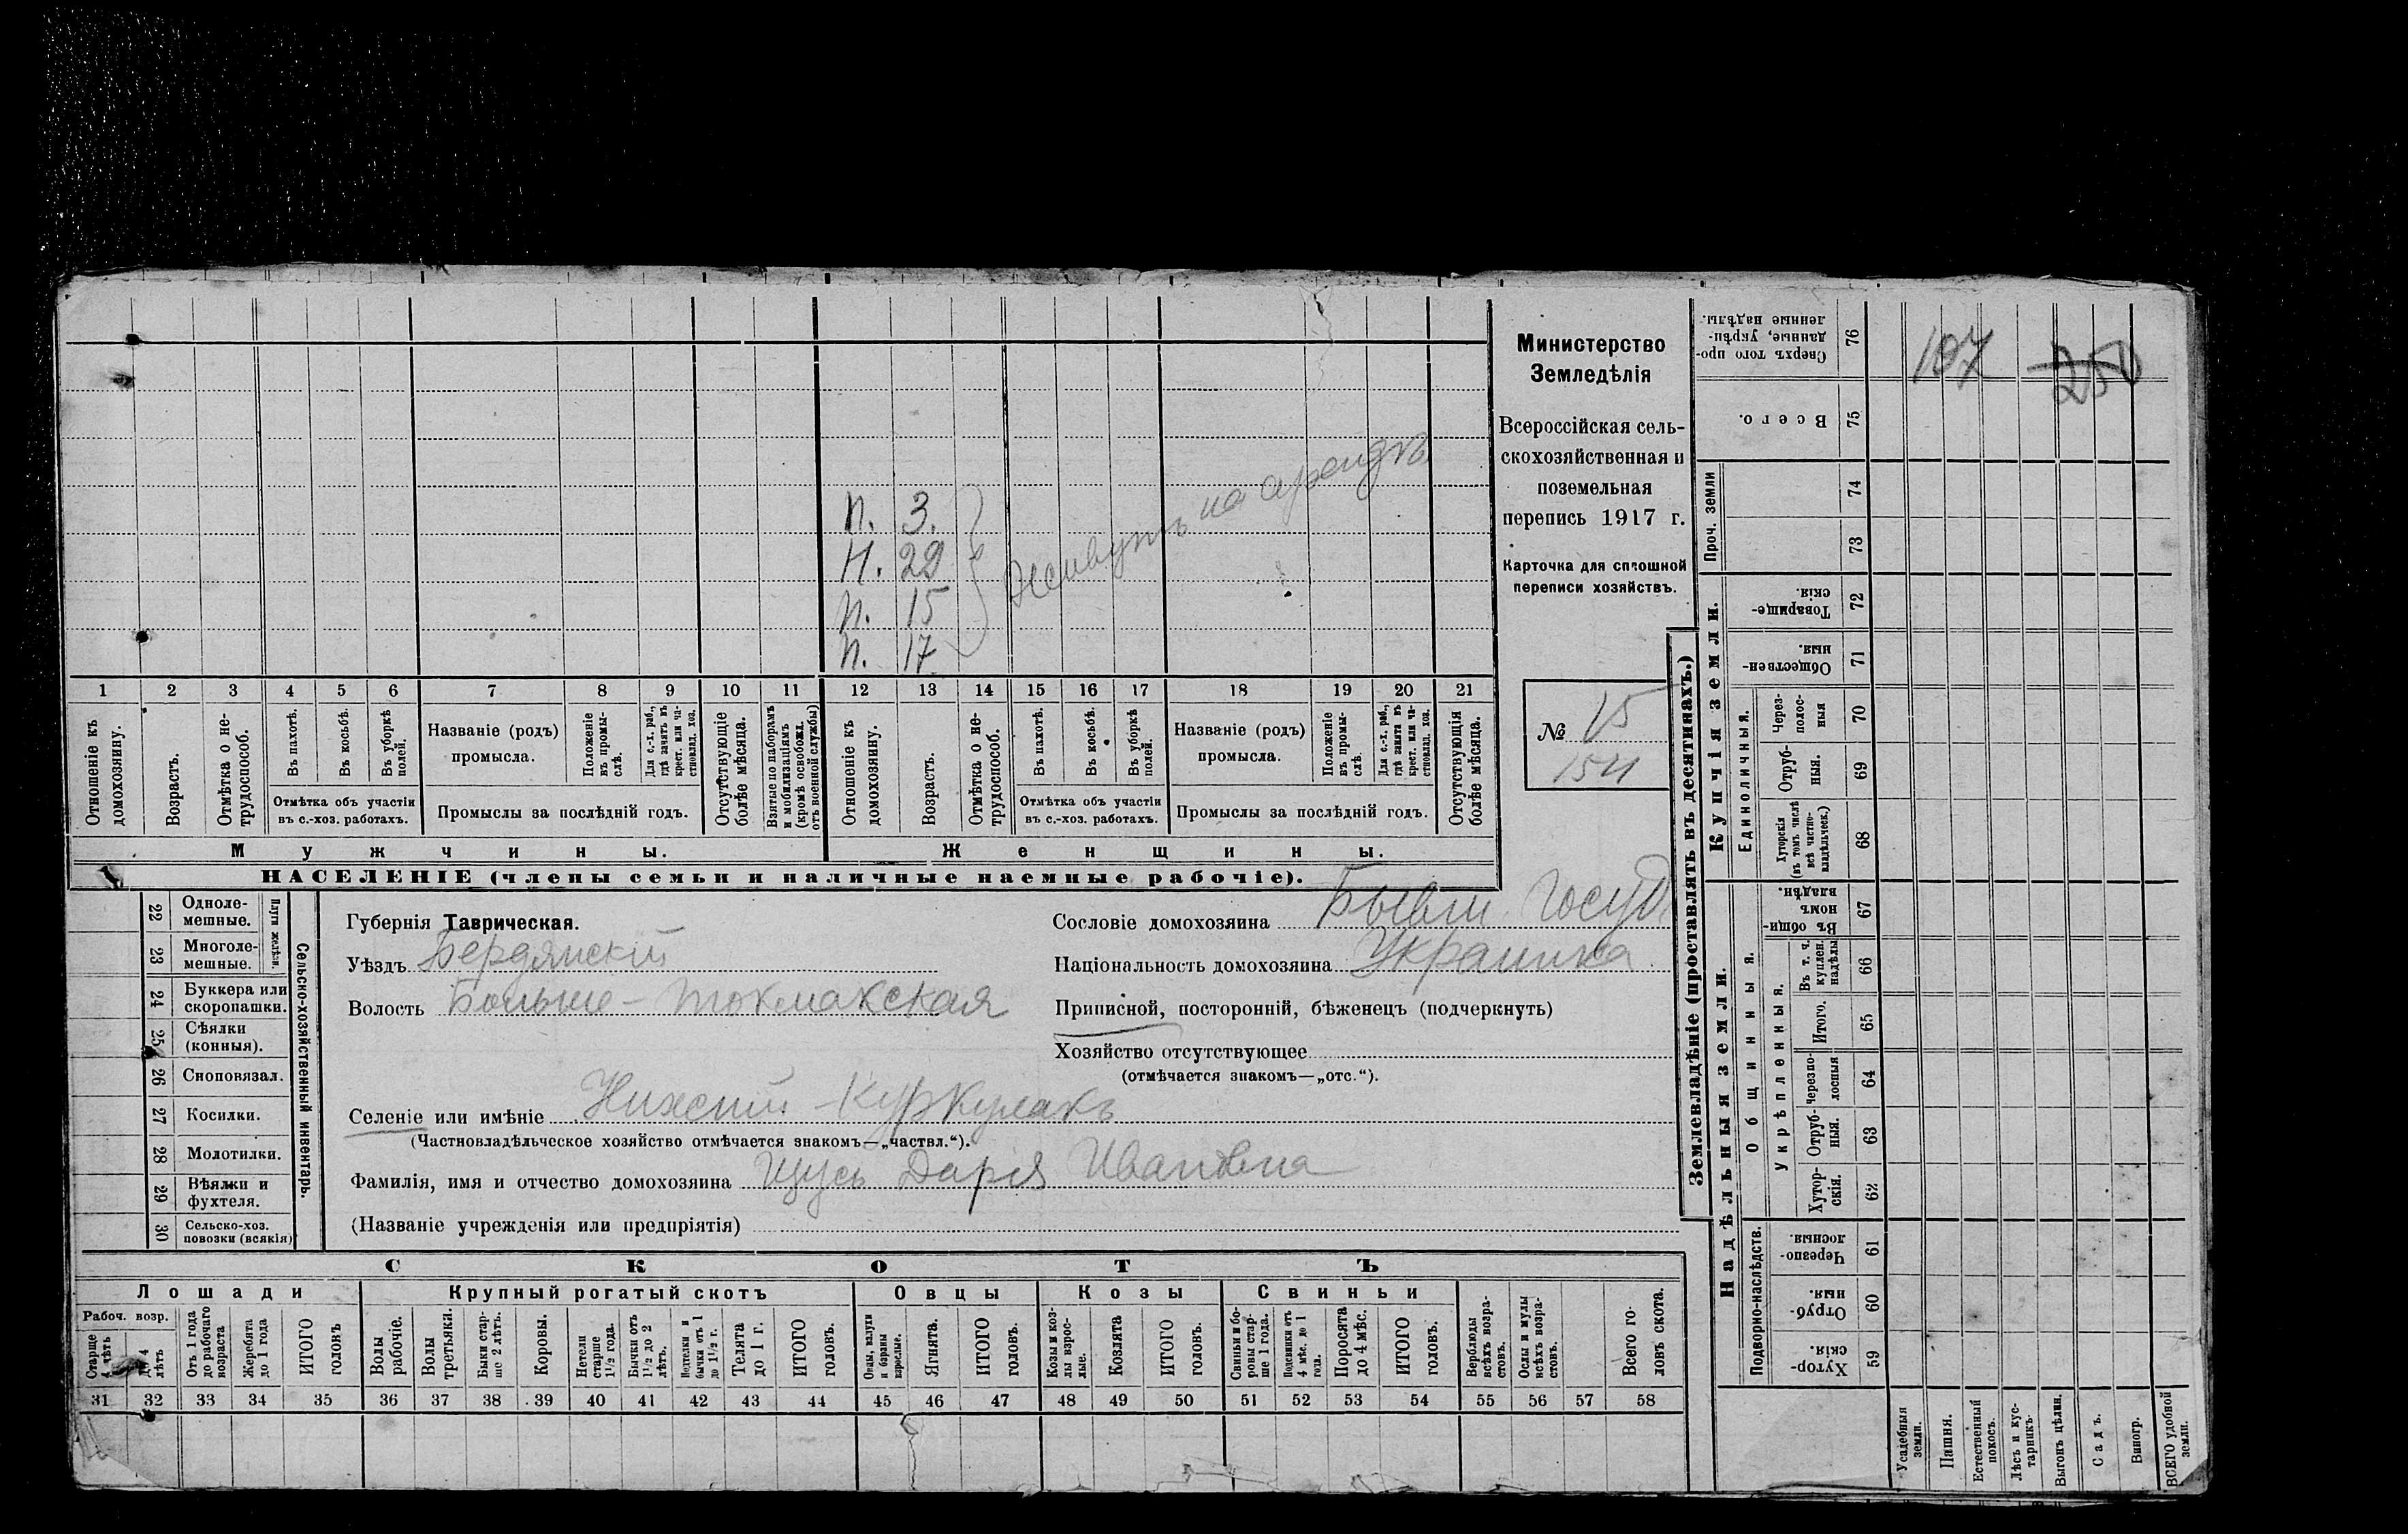 п. 3.
Н. 29
п. 15
п. 17
живутъ на арендѣ
1 2 3 4 5 6 7 8 9 10 11 12 13 14 15 16 17 18 19 20 21
Отношеніе къ домохозяину.
Возрастъ.
Отмѣтка о нетрудоспособ.
Въ пахотѣ.
Въ косьбѣ.
Въ уборкѣ полей.
Отмѣтка объ участіи
въ с.-хоз. работахъ.
Названіе (родъ)
промысла.
Положеніе въ промыслѣ.
Для с.-х. раб., гдѣ занятъ въ крест. или частновлад. хоз.
Промыслы за послѣдній годъ.
Отсутствующіе болѣе мѣсяца.
Взятые по наборамъ и мобилизаціямъ (кромѣ освобожд. отъ военной службы)
Отношеніе къ домохозяину.
Возрастъ.
Отмѣтка о нетрудоспособ.
Въ пахотѣ.
Въ косьбѣ.
Въ уборкѣ полей.
Отмѣтка объ участіи
въ с.-хоз. работахъ.
Названіе (родъ)
промысла.
Положеніе въ промыслѣ.
Для с.-х. раб., гдѣ занята въ крест. или частновлад. хоз.
Промыслы за послѣдній годъ.
Отсутствующія болѣе мѣсяца.
Мужчины.
Женщины.
НАСЕЛЕНІЕ (члены семьи и наличные наемные рабочіе).
Министерство
Земледѣлія
Всероссійская сель-
скохозяйственная и
поземельная
перепись 1917 г.
Карточка для сплошной
переписи хозяйствъ.
№ 15
154
Сельско-хозяйственный инвентарь.
Плуги желѣзн.
22 Одноле-
мешные.
23 Многоле-
мешные.
24 Буккера или
скоропашки.
25 Сѣялки
(конныя).
26 Сноповязал.
27 Косилки.
28 Молотилки.
29 Вѣялки и
фухтеля.
30 Сельско-хоз.
повозки (всякія)
Губернія Таврическая.
Уѣздъ Бердянскій
Волость Больше-Токмакская
Селеніе или имѣніе Нижній Куркулакъ
(Частновладѣльческое хозяйство отмѣчается знакомъ—„частвл.“).
Фамилія, имя и отчество домохозяина Щусь Дарія Ивановна
(Названіе учрежденія или предпріятія)
Сословіе домохозяина Бывш. Госуд.
Національность домохозяина Украинка
Приписной, посторонній, бѣженецъ (подчеркнуть)
Хозяйство отсутствующее
(отмѣчается знакомъ—„отс.“).
СКОТЪ
Лошади
Крупный рогатый скотъ
Овцы
Козы
Свиньи
Рабоч. возр.
Старше 4 лѣтъ
До 4 лѣтъ
Отъ 1 года до рабочаго возраста
Жеребята до 1 года
ИТОГО головъ
Волы рабочіе.
Волы третьяки.
Быки старше 2 лѣтъ.
Коровы.
Нетели старше 1½ года.
Бычки отъ 1½ до 2 лѣтъ.
Телята до 1 г.
ИТОГО головъ.
Овцы, валухи и бараны взрослые.
Ягнята.
ИТОГО головъ.
Козы и козлы взрослые.
Козлята
ИТОГО головъ.
Свиньи и боровы старше 1 года.
Подсвинки отъ 4 мѣс. до 1 года.
Поросята до 4 мѣс.
ИТОГО головъ.
Верблюды всѣхъ возрастовъ.
Ослы и мулы всѣхъ возрастовъ.
Всего головъ скота.
31 32 33 34 35 36 37 38 39 40 41 42 43 44 45 46 47 48 49 50 51 52 53 54 55 56 57 58
Землевладѣніе (проставлять въ десятинахъ.)
Надѣльныя земли.
Купчія земли.
Проч. земли
Сверхъ того проданные, укрѣпленные надѣлы. 76
Всего. 75
74
73
Товарищескія. 72
Общественныя. 71
Единоличныя.
Черезполосныя 70
Отрубныя. 69
Хуторскія (въ томъ числѣ всѣ частновладѣльческ.) 68
Общинныя.
Въ общинномъ владѣн. 67
Укрѣпленныя.
Въ т. ч. куплен. надѣлы 66
Итого. 65
Черезполосныя 64
Отрубныя. 63
Хуторскія. 62
Подворно-наслѣдств.
Черезполосныя. 61
Отрубныя. 60
Хуторскія. 59
107 250
Усадебныя земли.
Пашня.
Естественный покосъ.
Лѣсъ и кустарникъ.
Выгонъ цѣлин.
Садъ.
Виногр.
ВСЕГО удобной земли.